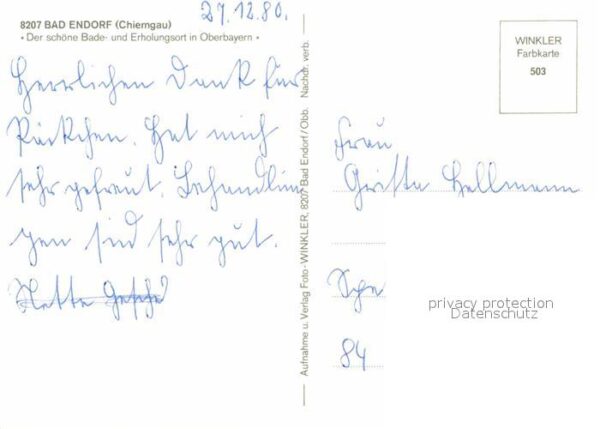 27.12.80.
8207 BAD ENDORF (Chiemgau)
• Der schöne Bade- und Erholungsort in Oberbayern •
Herzlichen Dank für
Päckchen. Hat mich
sehr gefreut. Behandlun
gen sind sehr gut.
Aufnahme u. Verlag Foto-WINKLER, 8207 Bad Endorf/Obb. Nachdr. verb.
WINKLER
Farbkarte
503
Frau
Hellmann
84
privacy protection
Datenschutz